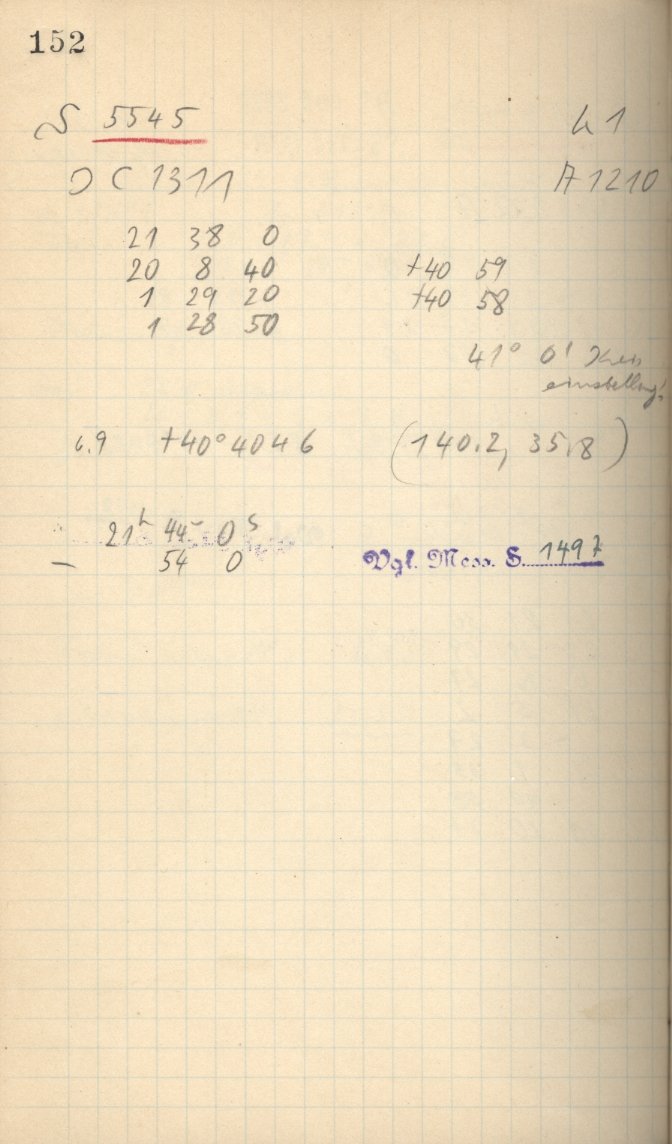 152
S 5545 h 1
JC 1311 A 1210
21 38 0
20 8 40 +40 59
1 29 20 +40 58
1 28 50
41° 0'
einstellung!
6.9 +40° 4046 (140.2, 35.8)
21h 44m 0s
— 54 0 Vgl. Mess. S. 1497